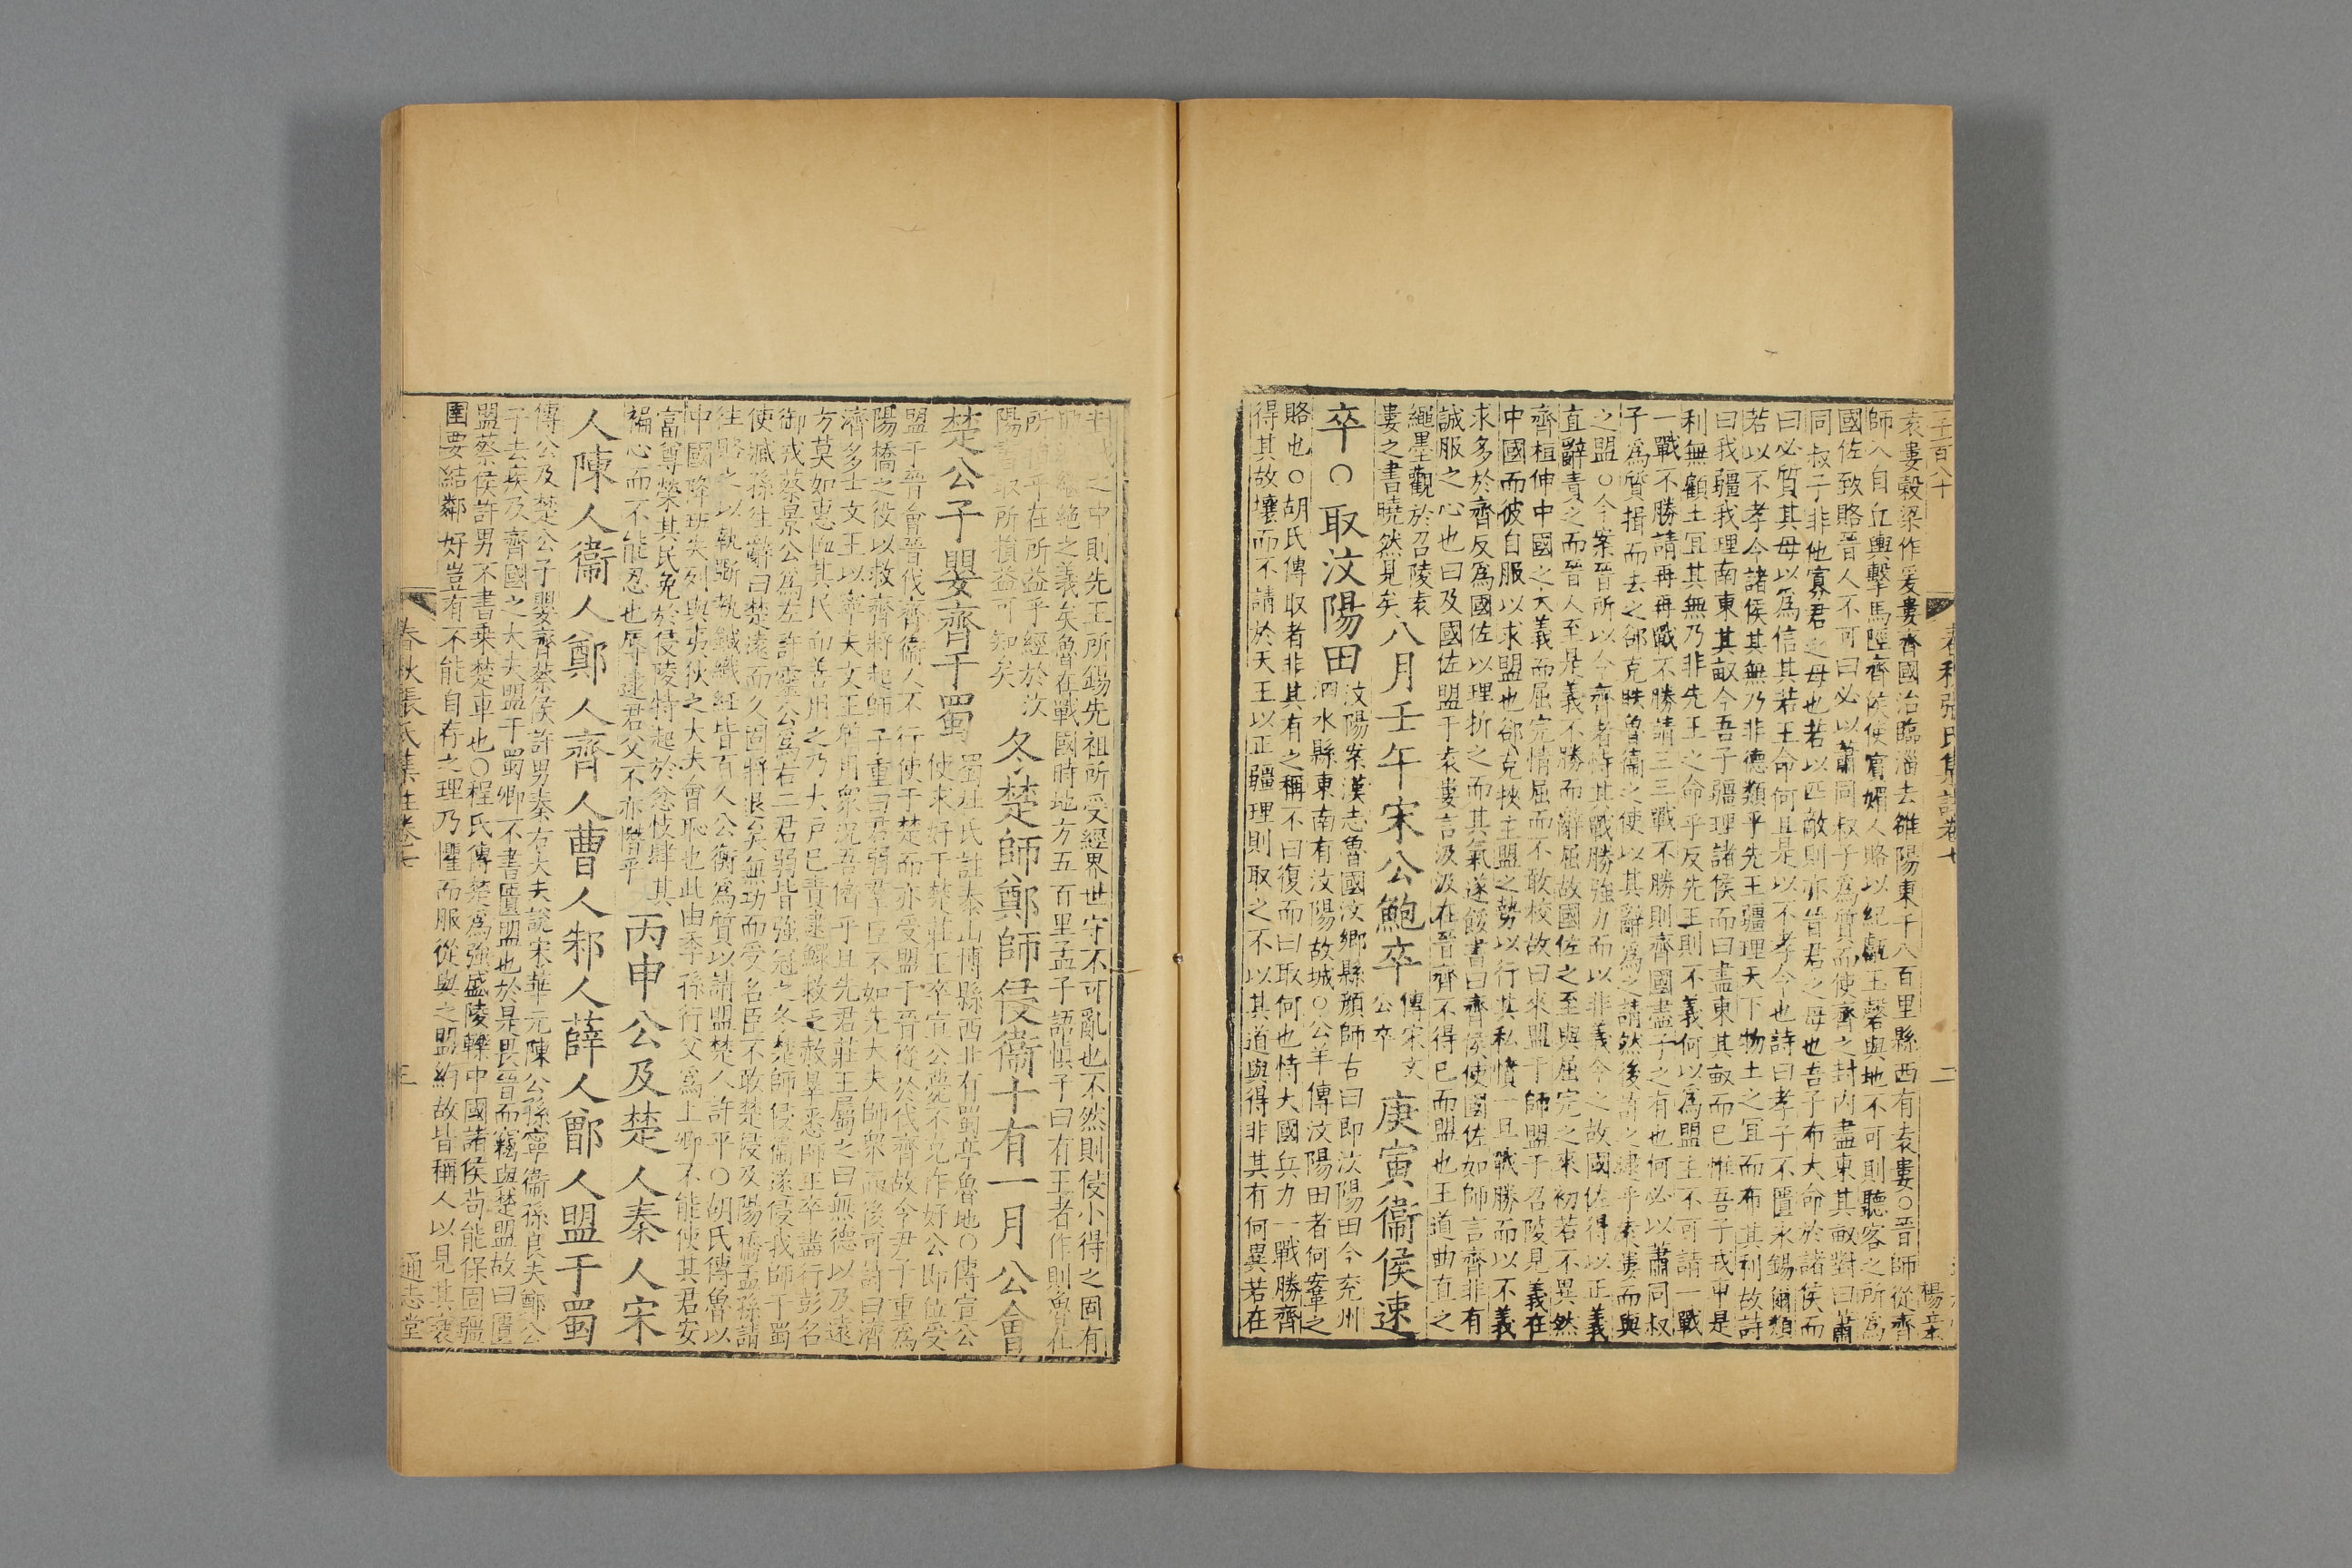 春秋張氏集註卷七 二
袁婁穀梁作爰婁齊國治臨淄去雒陽東千八百里縣西有袁婁○晉師從齊
師入自丘輿擊馬陘齊侯使賓媚人賂以紀甗玉磬與地不可則聽客之所為
國佐致賂晉人不可曰必以蕭同叔子為質而使齊之封內盡東其畝對曰蕭
同叔子非他寡君之母也若以匹敵則亦晉君之母也吾子布大命於諸侯而
曰必質其母以為信其若王命何且是以不孝令也詩曰孝子不匱永錫爾類
若以不孝令諸侯其無乃非德類乎先王疆理天下物土之宜而布其利故詩
曰我疆我理南東其畝今吾子疆理諸侯而曰盡東其畝而已惟吾子戎車是
利無顧土宜其無乃非先王之命乎反先王則不義何以為盟主不可請一戰
一戰不勝請再再戰不勝請三三戰不勝則齊國盡子之有也何必以蕭同叔
子為質揖而去之郤克眣魯衞之使以其辭為之請然後許之逮乎袁婁而與
之盟○今案晉所以令齊者恃其戰勝強力而以非義令之故國佐得以正義
直辭責之而晉人至是義不勝而辭屈故國佐之至與屈完之來初若不異然
齊桓伸中國之大義而屈完情屈而不敢校故曰來盟于師盟于召陵見義在
中國而彼自服以求盟也郤克挾主盟之勢以行其私憤一旦戰勝而以不義
求多於齊反為國佐以理折之而其氣遂餒書曰齊侯使國佐如師言齊非有
誠服之心也曰及國佐盟于袁婁言汲汲在晉齊不得已而盟也王道曲直之
繩墨觀於召陵袁
婁之書曉然見矣
八月壬午宋公鮑卒
傳宋文
公卒
庚寅衞侯速
卒○取汶陽田
汶陽案漢志魯國汶鄉縣顔師古曰即汶陽田今兖州
泗水縣東南有汶陽故城○公羊傳汶陽田者何鞌之
賂也○胡氏傳取者非其有之稱不曰復而曰取何也恃大國兵力一戰勝齊
得其故壤而不請於天王以正疆理則取之不以其道與得非其有何異若在
之中則先王所錫先祖所受經界世守不可亂也不然則侵小得之固有
繼絶之義矣魯在戰國時地方五百里孟子語愼子曰有王者作則魯在
所損乎在所益乎經於汶
陽書取所損益可知矣
冬楚師鄭師侵衞十有一月公會
楚公子嬰齊于蜀
蜀杜氏註泰山博縣西北有蜀亭魯地○傳宣公
使求好于楚莊王卒宣公薨不克作好公即位受
盟于晉會晉伐齊衞人不行使于楚而亦受盟于晉從於伐齊故令尹子重為
陽橋之役以救齊將起師子重曰君弱羣臣不如先大夫師衆而後可詩曰濟
濟多士文王以寧夫文王猶用衆況吾儕乎且先君莊王屬之曰無德以及遠
方莫如惠恤其民而善用之乃大戸已責逮鰥救乏赦罪悉師王卒盡行彭名
御戎蔡景公為左許靈公為右二君弱皆強冠之冬楚師侵衞遂侵我師于蜀
使臧孫往辭曰楚遠而久固將退矣無功而受名臣不敢楚侵及陽橋孟孫請
往賂之以執斲執鍼織紝皆百人公衡為質以請盟楚人許平○胡氏傳魯以
中國降班失列與夷狄之大夫會恥也此由季孫行父為上卿不能使其君安
富尊榮其民免於侵陵特起於忿忮肆其
褊心而不能忍也辱逮君父不亦憯乎
丙申公及楚人秦人宋
人陳人衞人鄭人齊人曹人邾人薛人鄫人盟于蜀
傳公及楚公子嬰齊蔡侯許男秦右大夫說宋華元陳公孫寧衞孫良夫鄭公
子去疾及齊國之大夫盟于蜀卿不書匱盟也於是畏晉而竊與楚盟故曰匱
盟蔡侯許男不書乘楚車也○程氏傳楚為強盛陵轢中國諸侯苟能保固疆
圉要結鄰好豈有不能自存之理乃懼而服從與之盟約故皆稱人以見其衰
春秋張氏集註卷七 三 通志堂